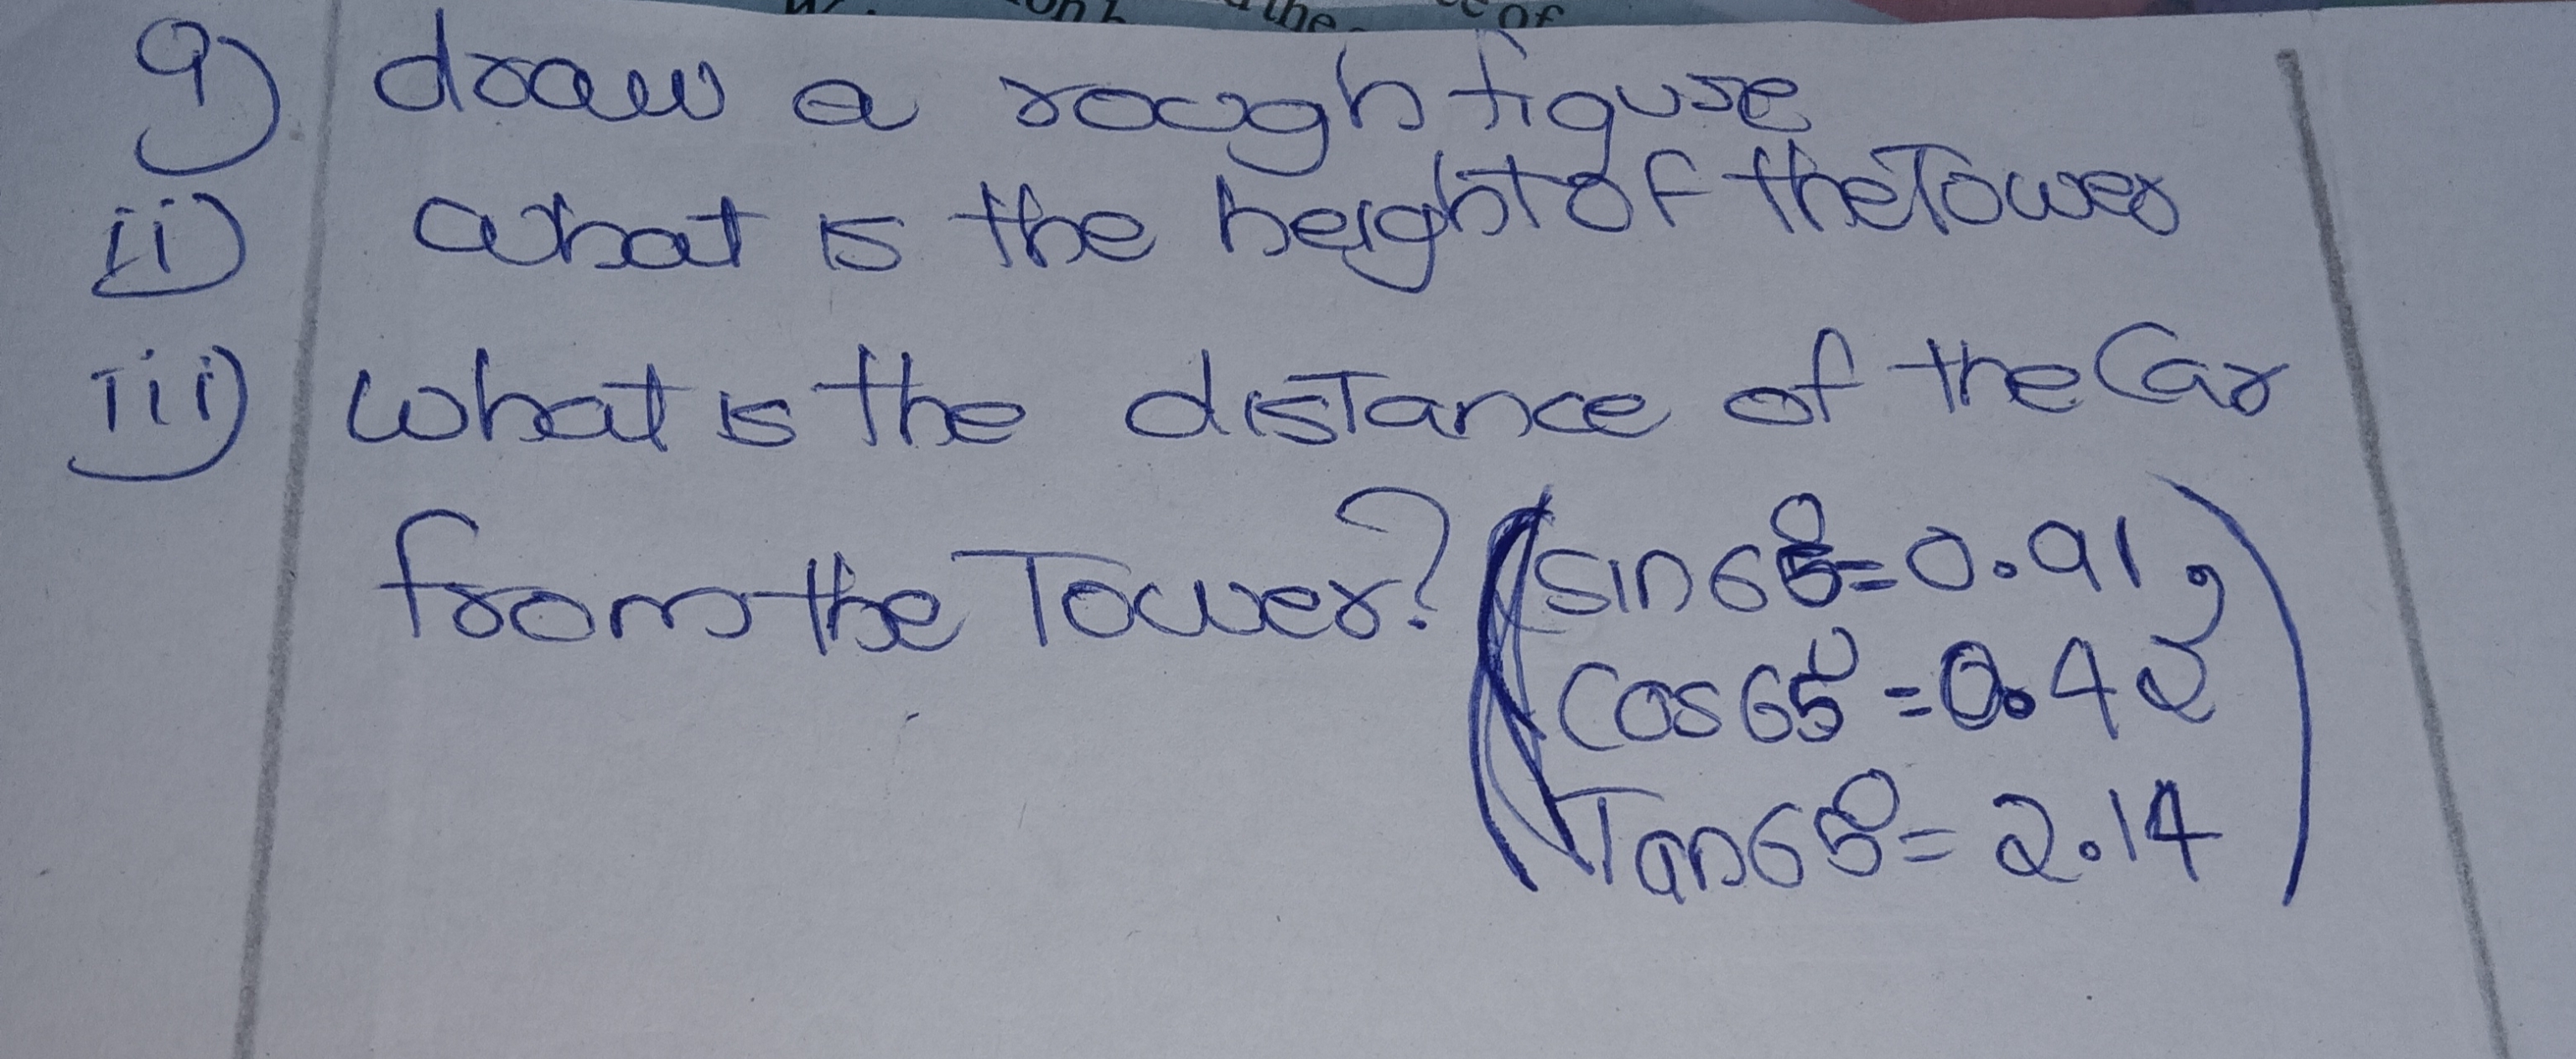 i) draw a rough figure
ii) what is the height of the Tower
iii) what is the distance of the Car
from the Tower? (sin65°=0.91,
cos65°=0.42
Tan65°= 2.14)